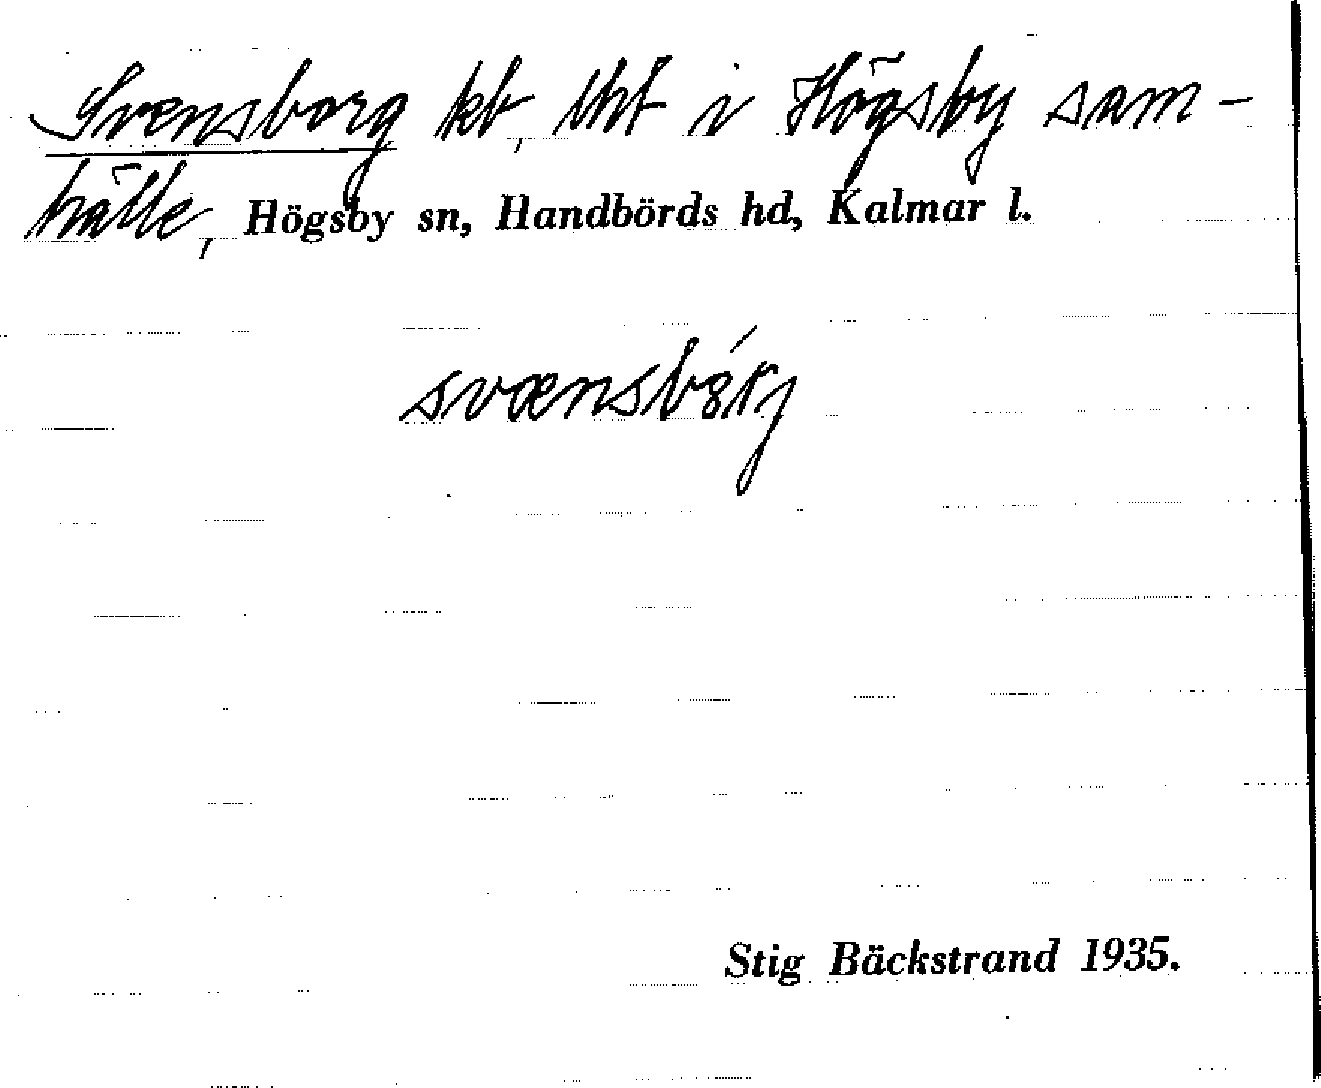 Svensborg kt, tht i Högsby sam-
hälle, Högsby sn, Handbörds hd, Kalmar l.
Stig Bäckstrand 1935.